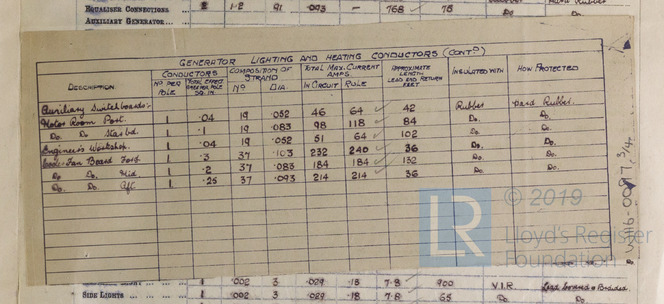 EQUALISER CONNECTIONS 2 1.2 91 .093 — 768 78 Do.
AUXILIARY GENERATOR
GENERATOR LIGHTING AND HEATING CONDUCTORS (CONTD)
DESCRIPTION. CONDUCTORS COMPOSITION OF STRAND TOTAL MAX. CURRENT AMPS. APPROXIMATE LENGTH LEAD AND RETURN FEET INSULATED WITH HOW PROTECTED
NO PER POLE TOTAL EFFECT. AREA PER POLE SQ. IN. NO DIA. IN CIRCUIT RULE
Auxiliary Switchboards:-
Motor Room Port. 1 .04 19 .052 46 64 42 Rubber Hard Rubber.
Do. Do Starbd. 1 .1 19 .083 98 118 84 Do. Do.
Engineers Workshop. 1 .04 19 .052 51 64 102 Do. Do.
Fan Board Ford 1 .3 37 .103 232 240 36 Do. Do.
Do. Do. Mid. 1 .2 37 .083 184 184 132 Do. Do.
Do. Do. Aft. 1 .25 37 .093 214 214 36 Do. Do.
© 2019
LR
Lloyd's Register
Foundation
1 .002 3 .029 .18 7.8 900 V.I.R. Lead Covered & Braided
SIDE LIGHTS 1 .002 3 .029 .18 7.8 65 Do. Do.